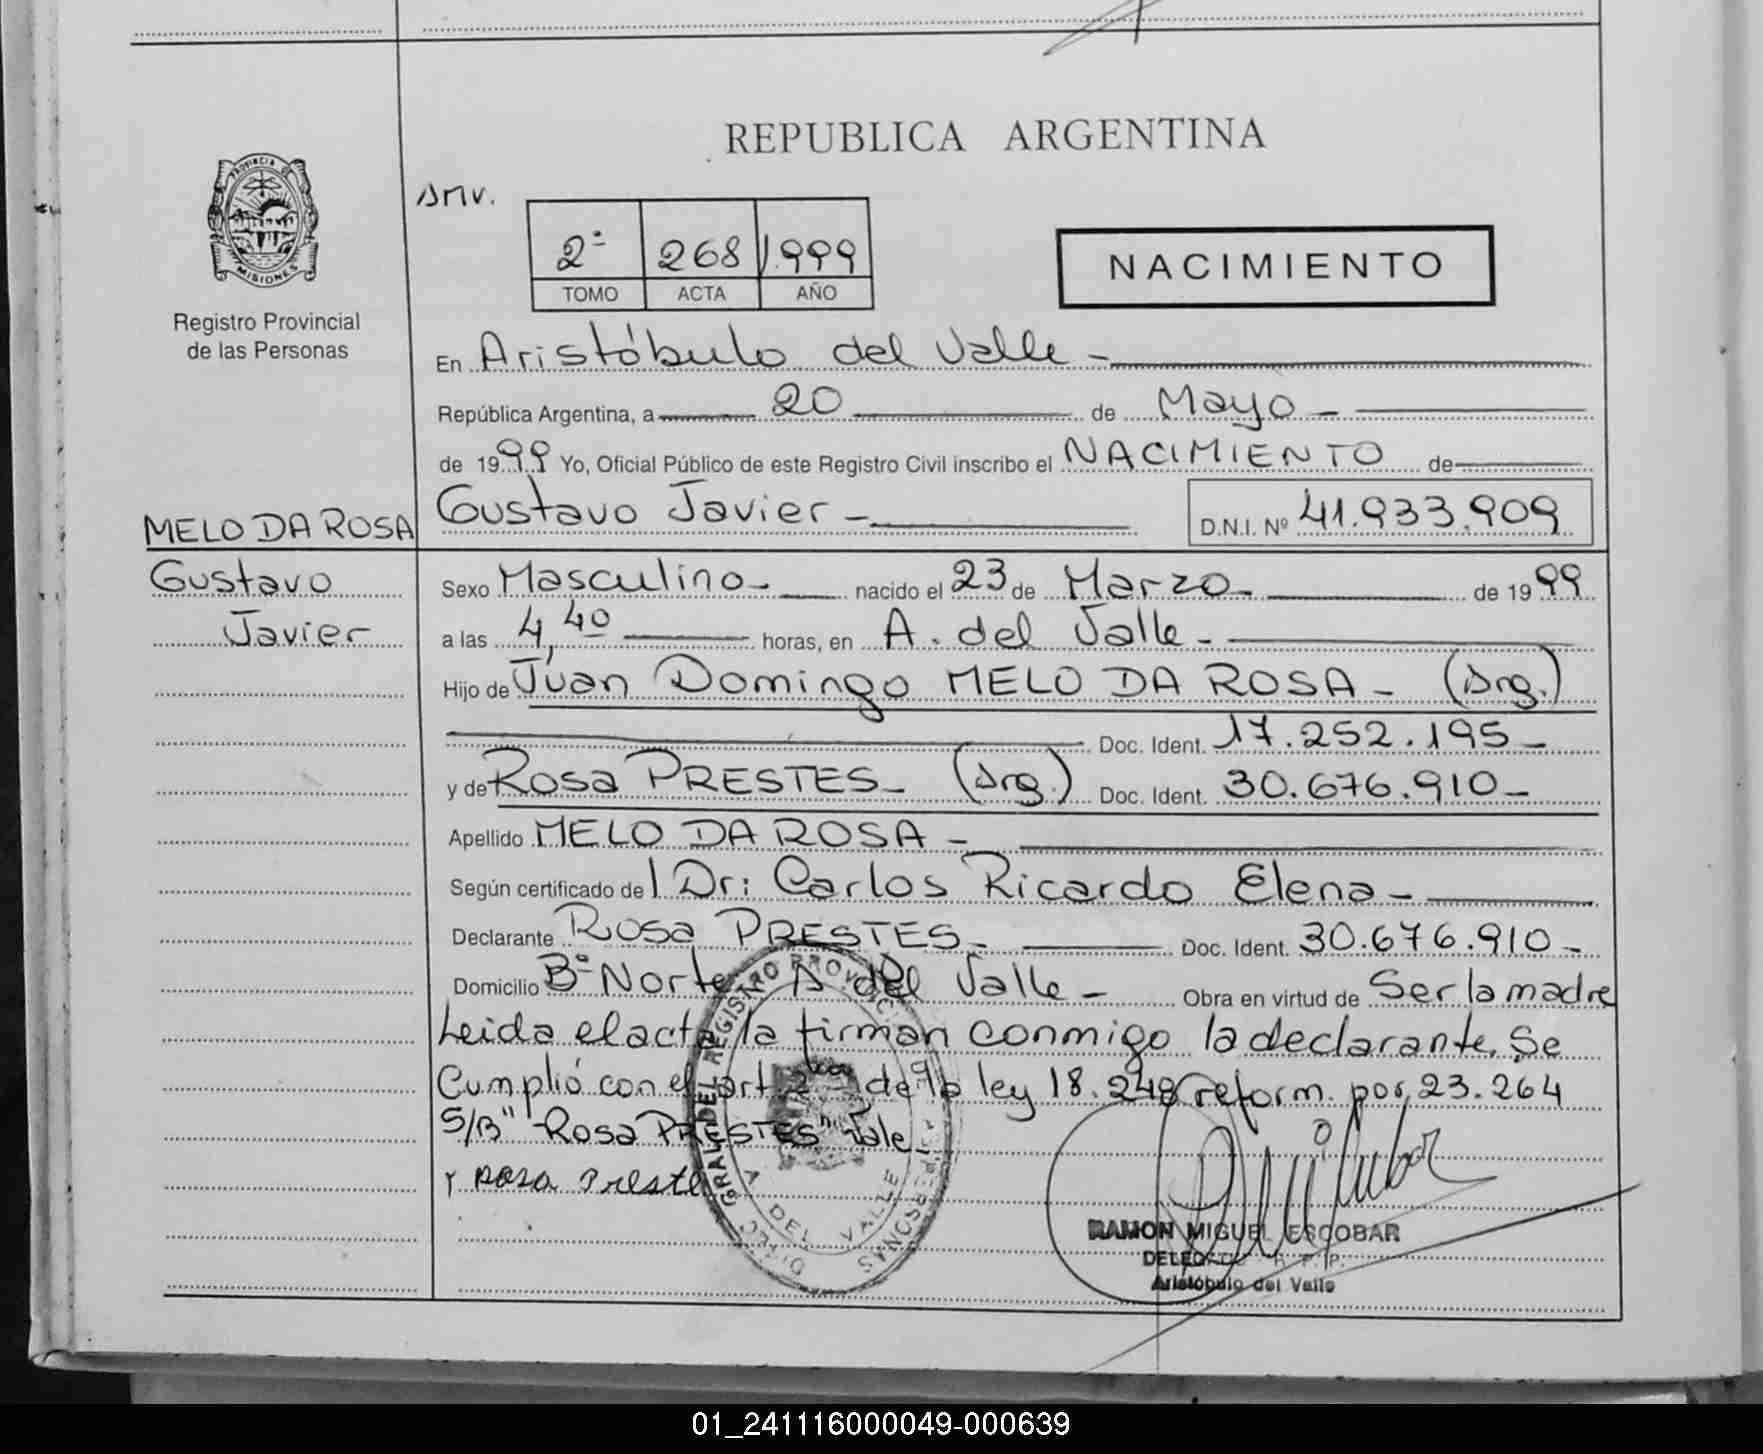 REPUBLICA ARGENTINA
PROVINCIA DE
MISIONES
Registro Provincial
de las Personas
2º 268 1.999
TOMO ACTA AÑO
NACIMIENTO
En Aristóbulo del Valle -
República Argentina, a 20 de Mayo -
de 1999 Yo, Oficial Público de este Registro Civil inscribo el NACIMIENTO de
MELO DA ROSA
Gustavo
Javier
Gustavo Javier - D.N.I. Nº 41.933.909
Sexo Masculino - nacido el 23 de Marzo - de 1999
a las 4,40 horas, en A. del Valle -
Hijo de Juan Domingo MELO DA ROSA - (Arg.)
Doc. Ident. 17.252.195 -
y de Rosa PRESTES - (Arg.) Doc. Ident. 30.676.910 -
Apellido MELO DA ROSA -
Según certificado del Dr: Carlos Ricardo Elena -
Declarante Rosa PRESTES - Doc. Ident. 30.676.910 -
Domicilio Bº Norte A. del Valle - Obra en virtud de Ser la madre
Leida el acta la firman conmigo la declarante. Se
Cumplió con el art 2º de la ley 18.248 reform. por 23.264
S/B" Rosa PRESTES" Vale
Rosa Prestes
DIREC. GRAL. DEL REGISTRO PROVINCIAL PERSONAS
A. DEL VALLE
RAMON MIGUEL ESCOBAR
DELEGADO R. P. P.
Aristóbulo del Valle
01_241116000049-000639